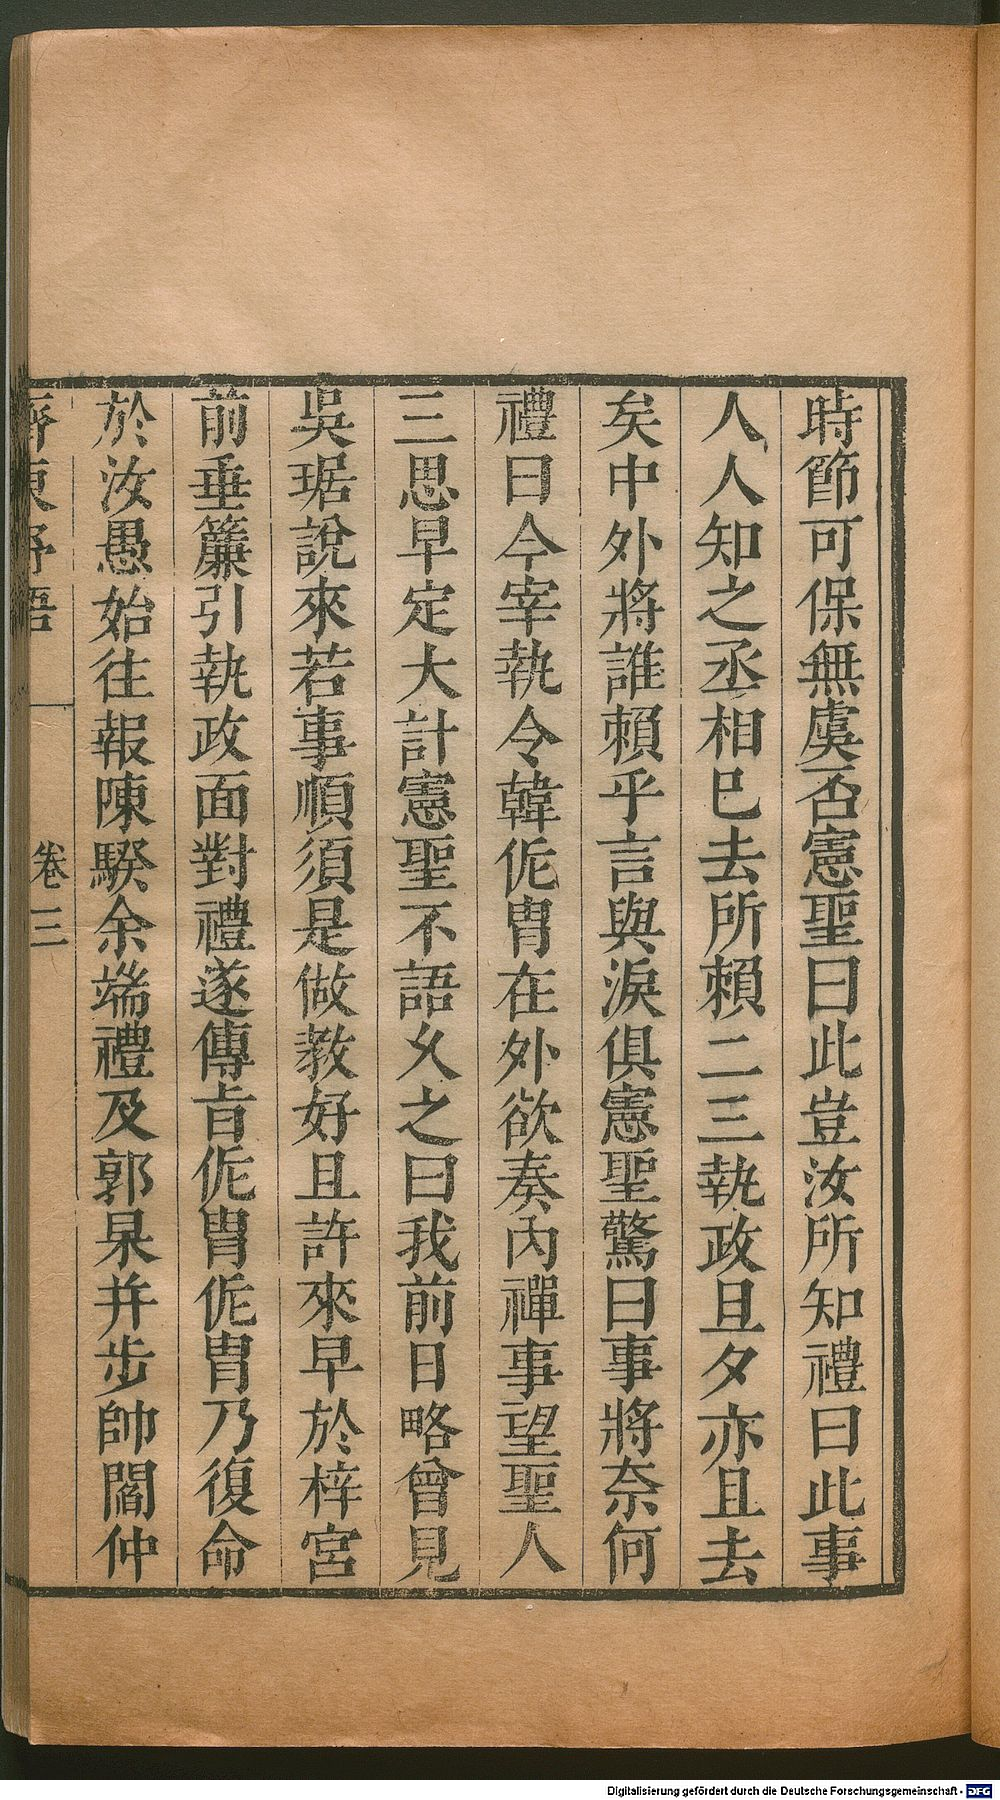 時節可保無虞否憲聖曰此豈汝所知禮曰此事
人人知之丞相已去所賴二三執政旦夕亦且去
矣中外將誰賴乎言與淚俱憲聖驚曰事將奈何
禮曰今宰執令韓侂胄在外欲奏內禪事望聖人
三思早定大計憲聖不語久之曰我前日略曾見
吳琚說來若事順須是做教好且許來早於梓宮
前垂簾引執政面對禮遂傳旨侂胄侂胄乃復命
於汝愚始往報陳騤余端禮及郭杲并步帥閻仲
齊東野語 卷三
Digitalisierung gefördert durch die Deutsche Forschungsgemeinschaft - DFG